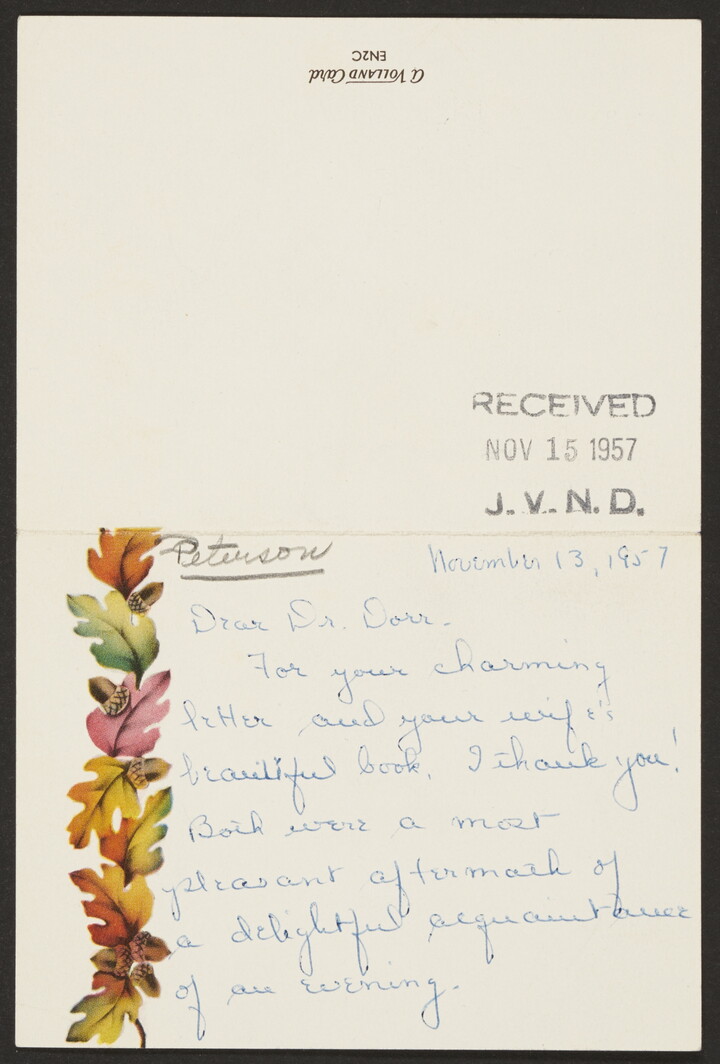 a Volland Card
EN2C
RECEIVED
NOV 15 1957
J.V.N.D.
Peterson
November 13, 1957
Dear Dr. Dorr.
For your charming
letter and your wife's
beautiful book, I thank you!
Both were a most
pleasant aftermath of
a delightful acquaintance
of an evening.